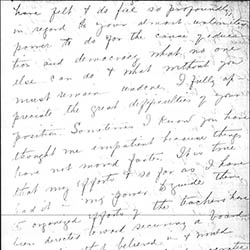 have felt & do feel so profoundly
in regard to your almost unlimited
power to do for the cause of educa-
tion and democracy what no one
else can do & what without you
must remain undone. I fully ap-
preciate the great difficulties of your
position. Sometimes I know you have
thought me impatient because things
have not moved faster. It is true
that my efforts & so far as I have
had it my power to guide them
organized efforts of the teachers have
been directed toward securing a board
believed in & would